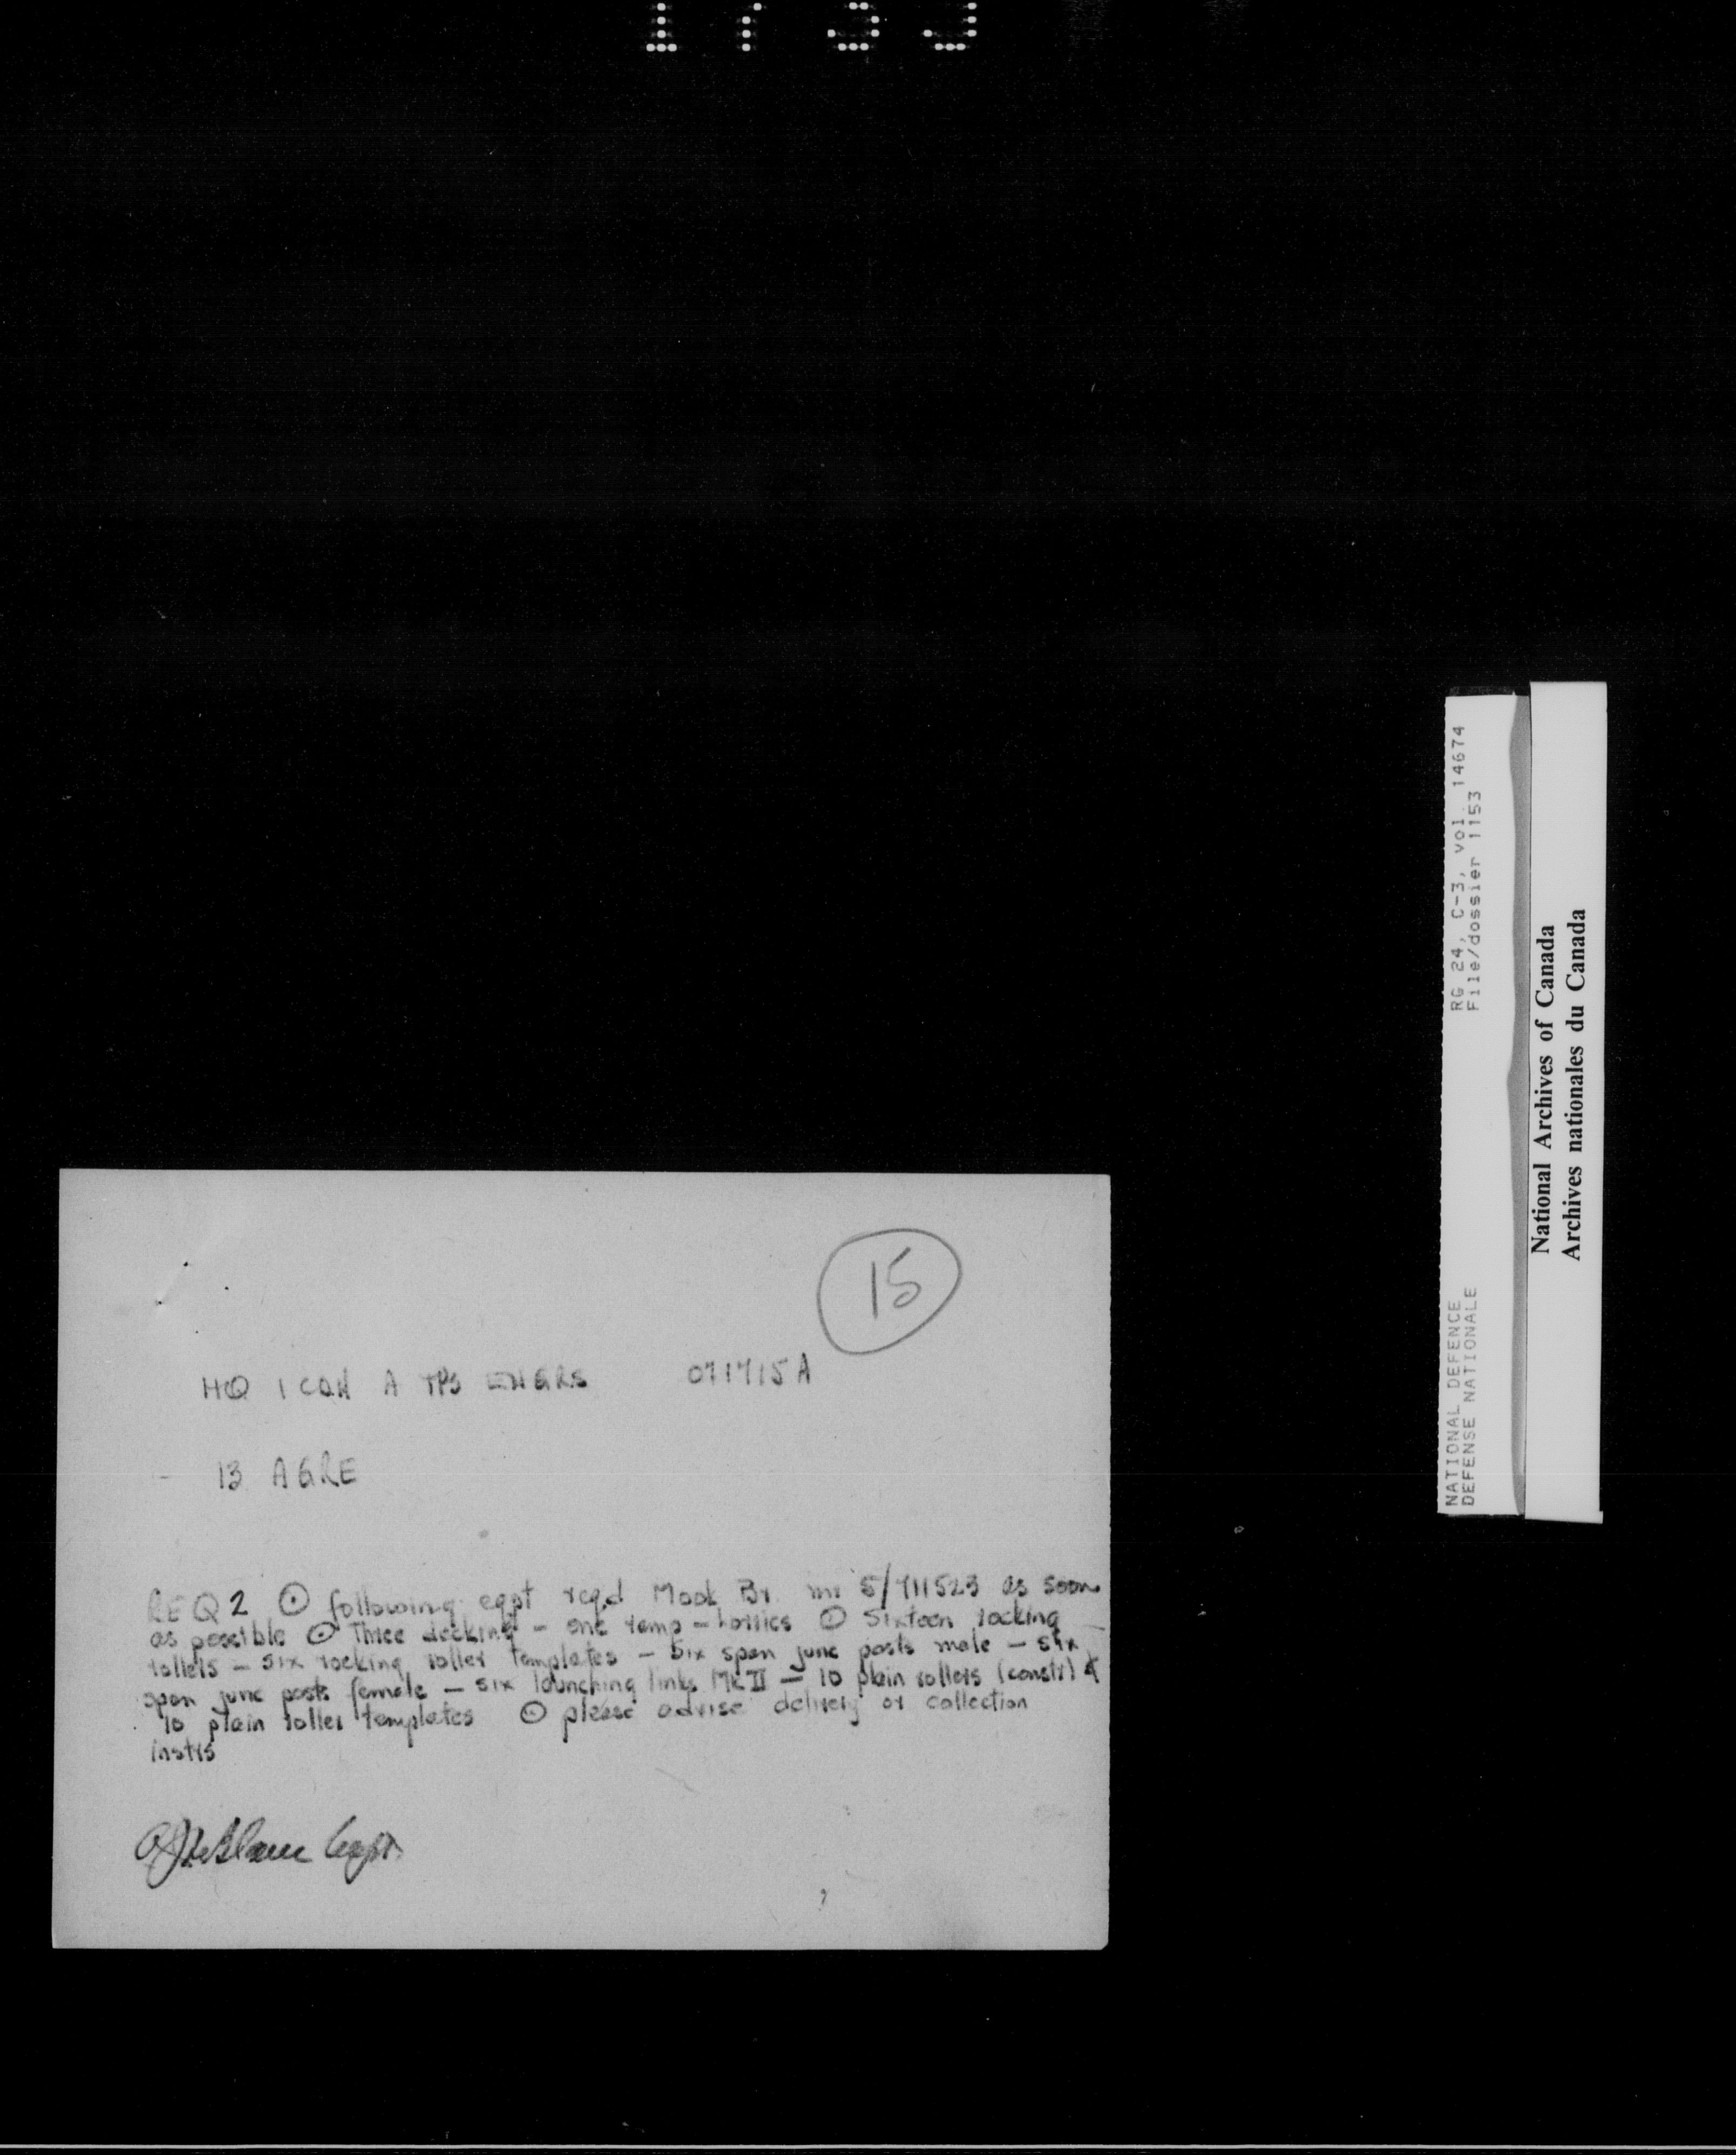 15
HQ 1 CDN A TPS ENGRS 071715A
13 AGRE
REQ 2 ⊙ following eqpt reqd Mook Br mr 5/711523 as soon
as possible ⊙ Three decking - one ramp - lorries ⊙ Sixteen rocking
rollers - six rocking roller templates - six span junc posts male - six
span junc posts female - six launching links Mk II - 10 plain rollers (constr) &
10 plain roller templates ⊙ please advise delivery or collection
instrs
Capt.
RG 24, C-3, vol. 14674
File/dossier 1153
NATIONAL DEFENCE
DEFENSE NATIONALE
National Archives of Canada
Archives nationales du Canada